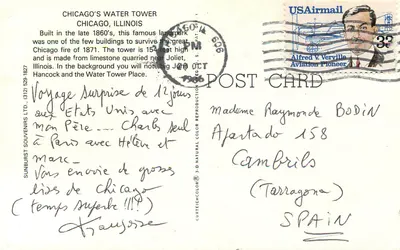 CHICAGO'S WATER TOWER
CHICAGO, ILLINOIS
Built in the late 1860's, this famous landmark
was one of the few buildings to survive the great
Chicago fire of 1871. The tower is 154 feet high
and is made from limestone quarried near Joliet,
Illinois. In the background you will notice the
Hancock and the Water Tower Place.
Voyage surprise de 12 jours
aux Etats Unis avec
mon Père... Charles seul
à Paris avec Helen et
Marc -
Vous envoie de grosses
bises de Chicago
(temps superbe !!!)
Françoise
SUNBURST SOUVENIRS LTD. (312) 539-1827
606
PM
29 OCT
1986
USAirmail
Alfred V. Verville
Aviation Pioneer
POST CARD
Madame Raymonde BODIN
Apartado 158
Cambrils
(Tarragona)
SPAIN